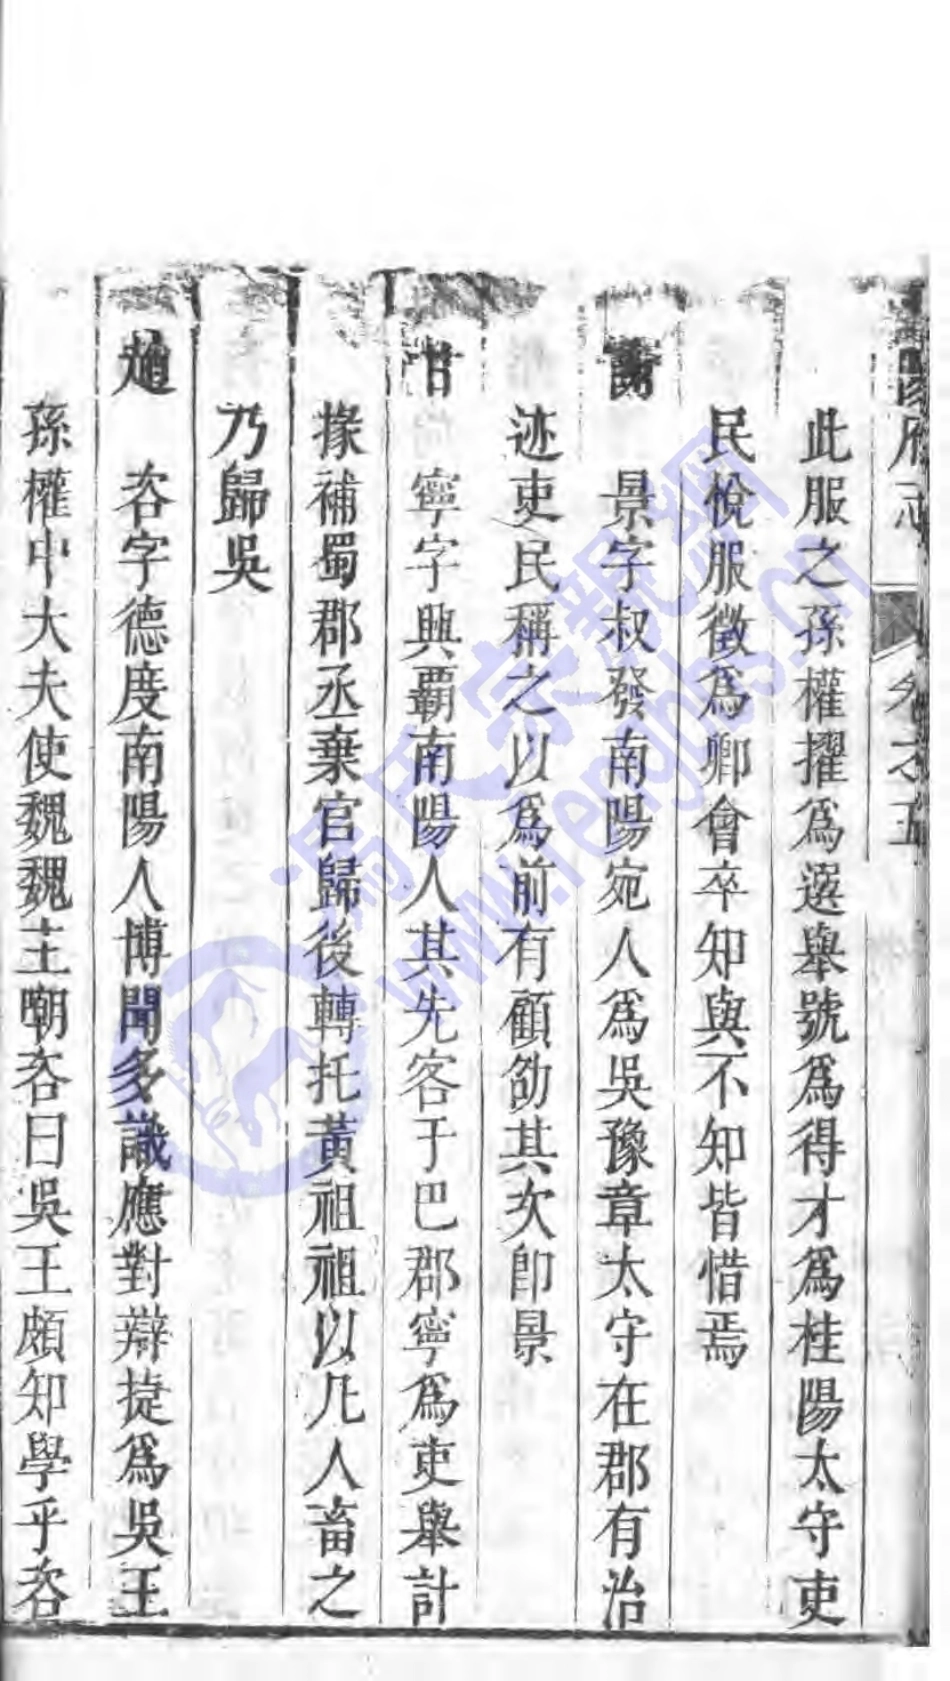 府志 卷之五
此服之孫權擢爲選舉號爲得才爲桂陽太守吏
民悅服徵爲卿會卒知與不知皆惜焉
謝 景字叔發南陽宛人爲吳豫章太守在郡有治
迹吏民稱之以爲前有顧劭其次卽景
甘 寧字興覇南陽人其先客于巴郡寧爲吏舉計
掾補蜀郡丞棄官歸後轉托黃祖祖以凡人畜之
乃歸吳
趙 咨字德度南陽人博聞多識應對辯捷爲吳王
孫權中大夫使魏魏主嘲咨曰吳王頗知學乎咨
馮氏宗親網
www.fengbs.cn